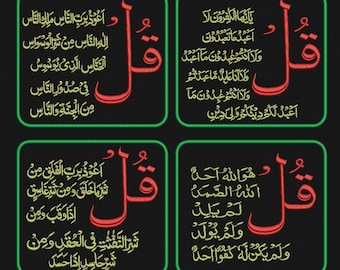 قُلْ
أَعُوذُ بِرَبِّ النَّاسِ مَلِكِ النَّاسِ
إِلَٰهِ النَّاسِ مِنْ شَرِّ الْوَسْوَاسِ
الْخَنَّاسِ الَّذِي يُوَسْوِسُ
فِي صُدُورِ النَّاسِ
مِنَ الْجِنَّةِ وَالنَّاسِ
قُلْ
يَا أَيُّهَا الْكَافِرُونَ لَا
أَعْبُدُ مَا تَعْبُدُونَ
وَلَا أَنْتُمْ عَابِدُونَ مَا أَعْبُدُ
وَلَا أَنَا عَابِدٌ مَا عَبَدْتُمْ
وَلَا أَنْتُمْ عَابِدُونَ مَا
أَعْبُدُ لَكُمْ دِينُكُمْ وَلِيَ دِينِ
قُلْ
أَعُوذُ بِرَبِّ الْفَلَقِ مِنْ
شَرِّ مَا خَلَقَ وَمِنْ شَرِّ غَاسِقٍ
إِذَا وَقَبَ وَمِنْ
شَرِّ النَّفَّاثَاتِ فِي الْعُقَدِ وَمِنْ
شَرِّ حَاسِدٍ إِذَا حَسَدَ
قُلْ
هُوَ اللَّهُ أَحَدٌ
اللَّهُ الصَّمَدُ
لَمْ يَلِدْ
وَلَمْ يُولَدْ
وَلَمْ يَكُنْ لَهُ كُفُوًا أَحَدٌ